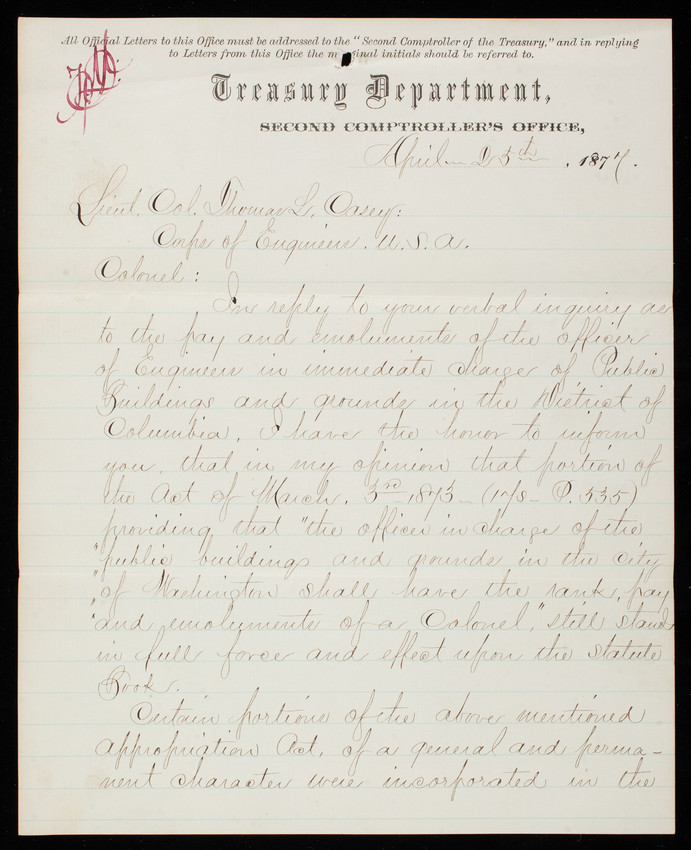 All Official Letters to this Office must be addressed to the "Second Comptroller of the Treasury," and in replying
to Letters from this Office the marginal initials should be referred to.
Treasury Department,
SECOND COMPTROLLER'S OFFICE,
April 25th, 1877.
Lieut. Col. Thomas L. Casey:
Corps of Engineers. U.S.A.
Colonel:
In reply to your verbal inquiry as
to the pay and emoluments of the officer
of Engineers in immediate charge of Public
Buildings and grounds in the District of
Columbia, I have the honor to inform
you, that in my opinion that portion of
the Act of March, 3rd 1873 – (17/S – P. 535)
providing that "the officer in charge of the
"public buildings and grounds in the city
"of Washington shall have the rank, pay
"and emoluments of a Colonel," still stands
in full force and effect upon the Statute
Book.
Certain portions of the above mentioned
appropriation Act, of a general and perma-
nent character were incorporated in the